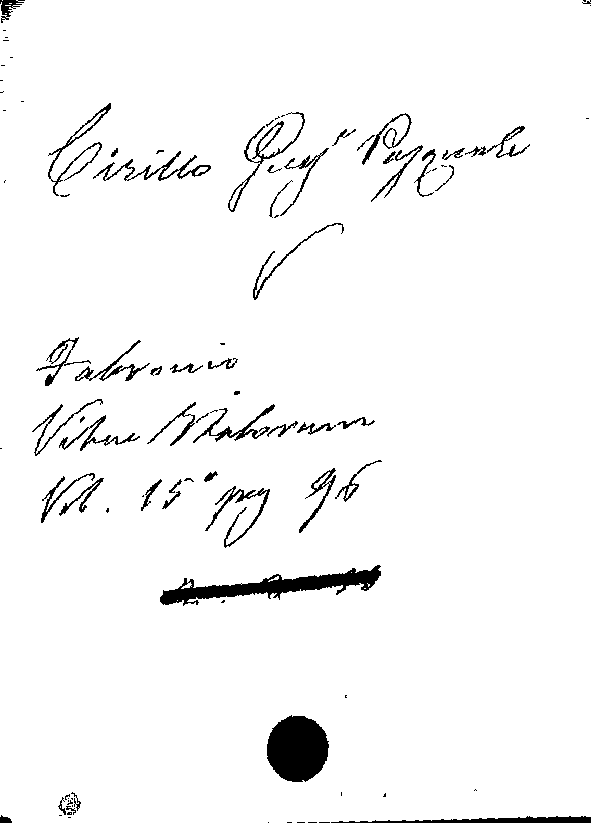 Cirillo Gius.e Pasquale
V
Fabronio
Vitae Italorum
Vol. 15° pag 96